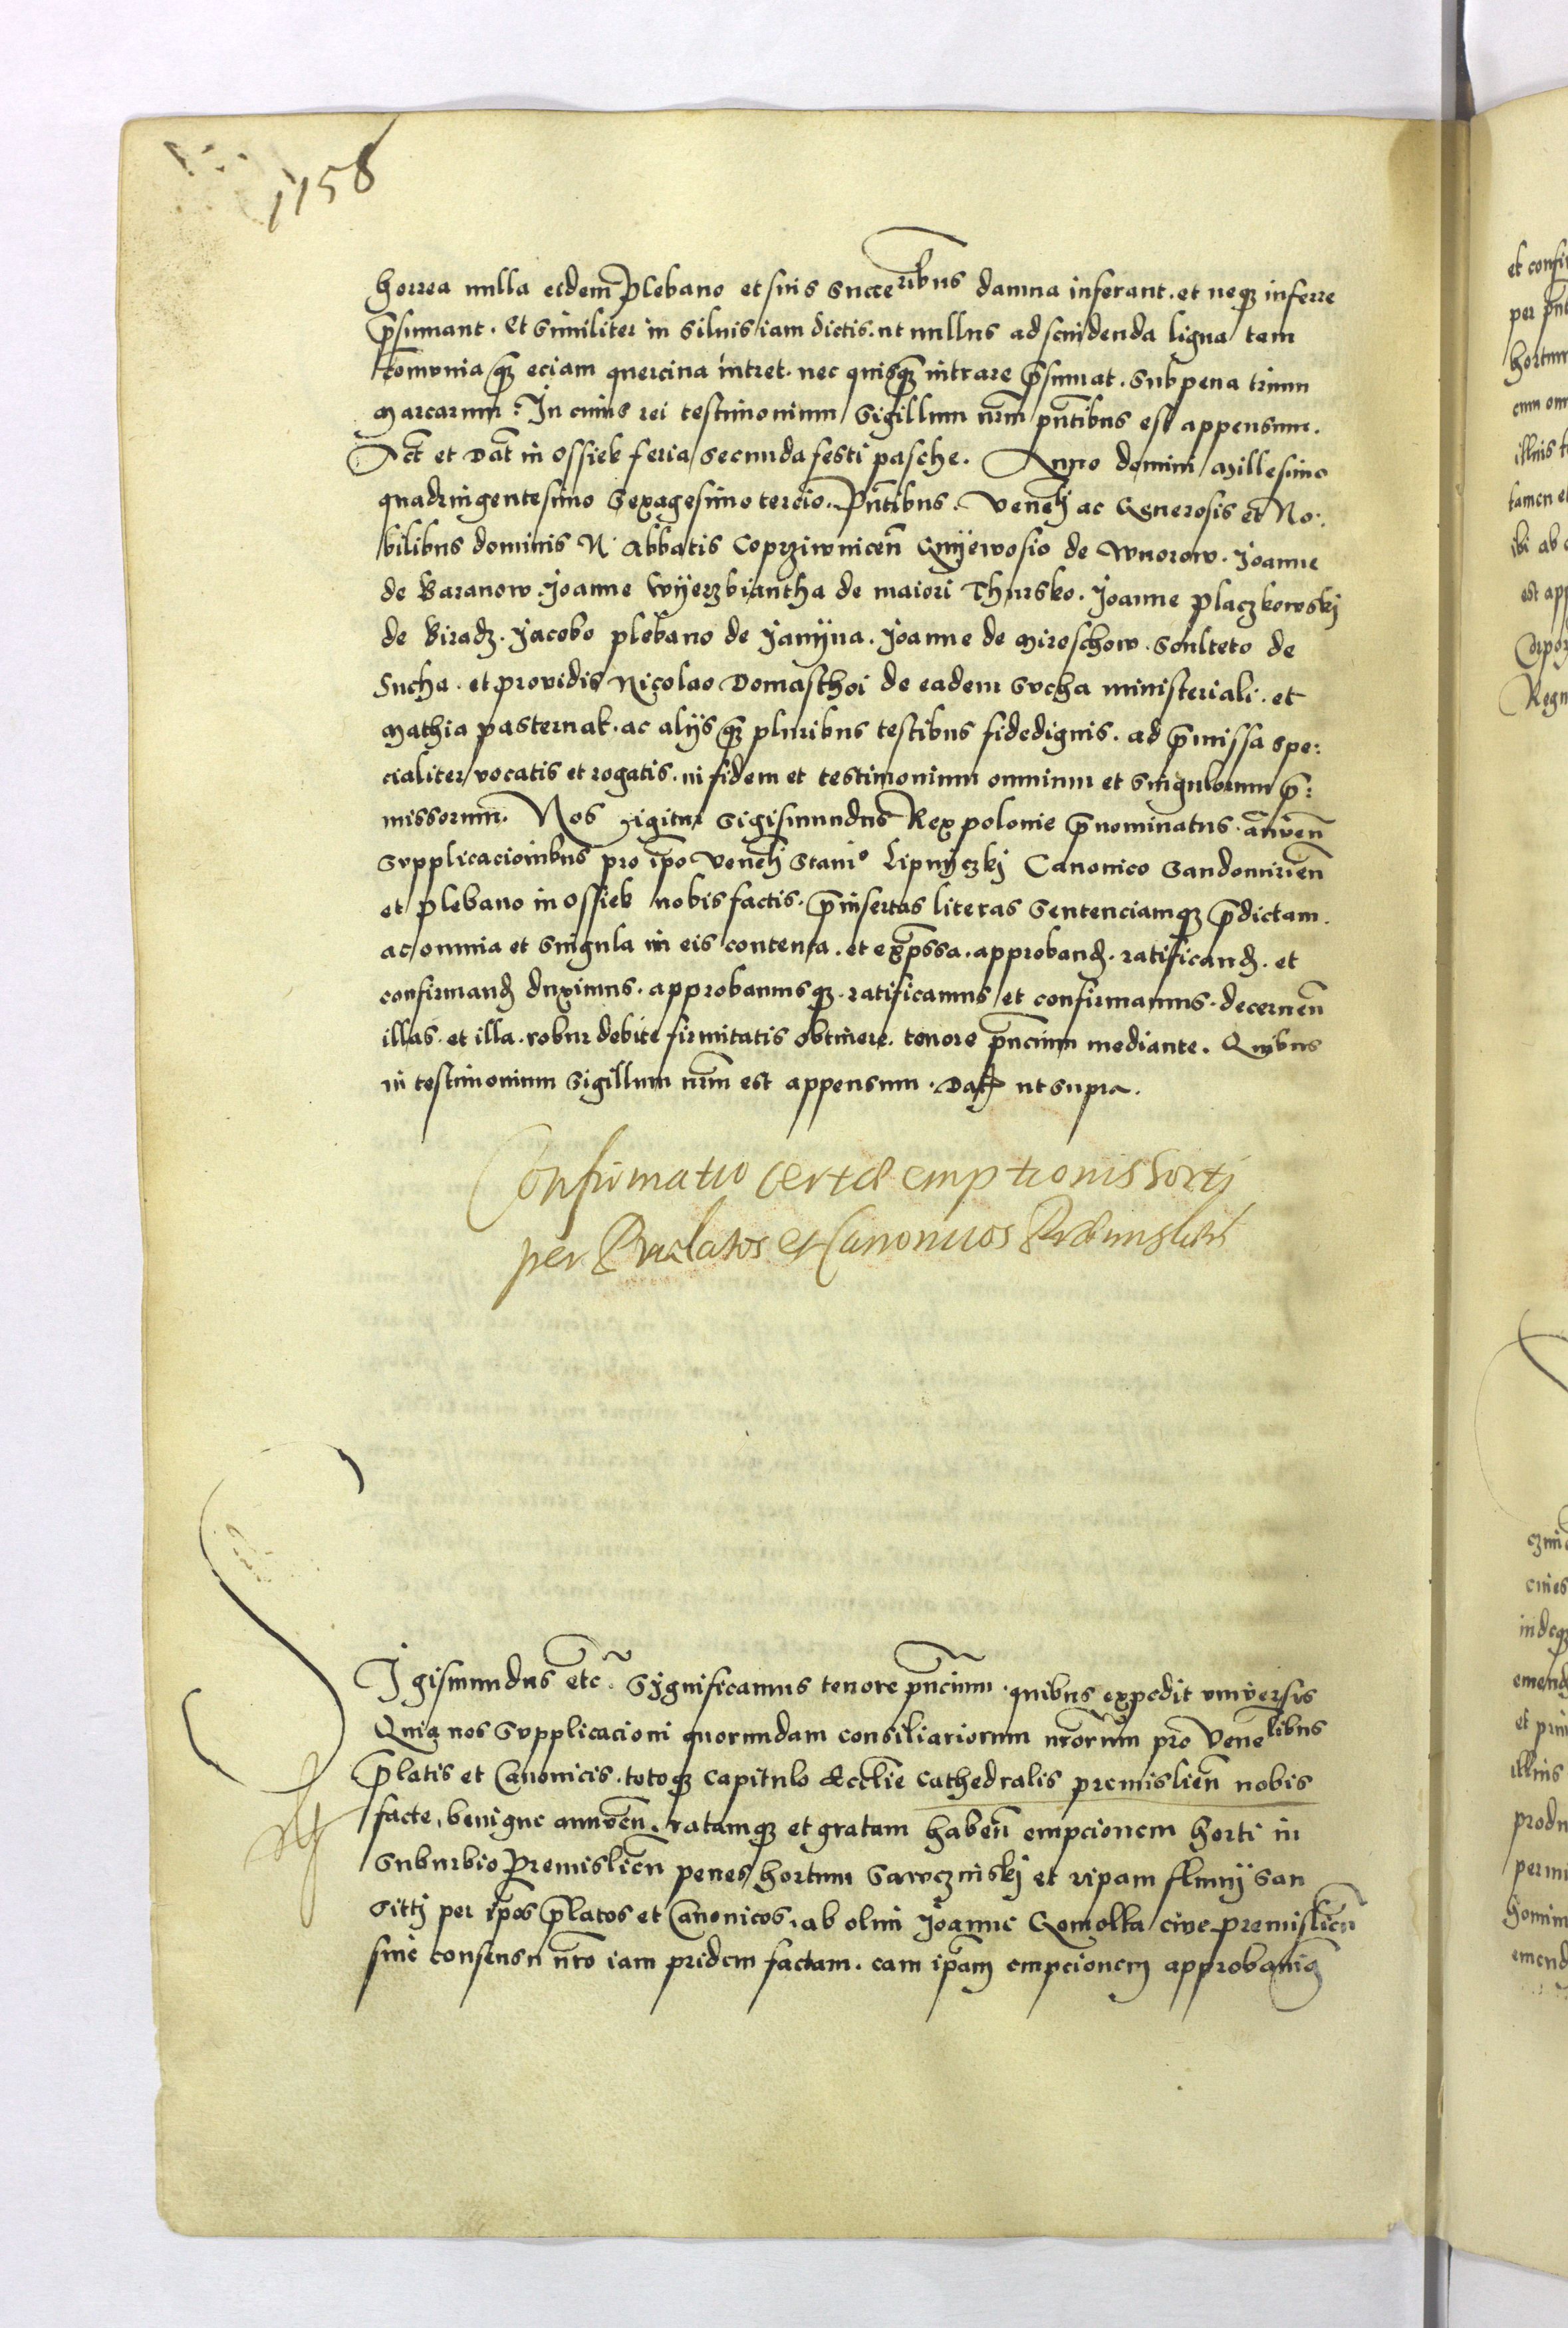 1158
horrea nulla eidem plebano et suis succeribus damna inferant. et neqȝ inferre
p̄sumant. Et similiter in siluis iam dictis. ut nullus ad scindenda ligna tam
com̄unia qȝ eciam quercina intret. nec quisqȝ intrare p̄sumat. sub pena trium
marcarum: In cuius rei testimonium sigillum nr̄m pn̄tibus est appensum.
Act̄ et Dat̄ in Ossiek feria secunda festi pasche. Anno domini millesimo
quadringentesimo sexagesimo tercio. Pn̄tibus. Venelj ac Generosis et No:
bilibus dominis N. Abbatis Coprziwnicen̄ Gnyewosio de Wnorow. Joanne
de Baranow. Joanne Wyerzbiantha de maiori Thursko. Joanne placzkowskj
de Biradz. Jacobo plebano de Janyna. Joanne de Miroschow. Soulteto de
Sucha. et prouidis Nicolao Domaschoi de eadem Sucha ministeriali. et
Mathia pasternak. ac alijs qȝ pluribus testibus fidedignis. ad p̄missa spe:
cialiter vocatis et rogatis. in fidem et testimonium omnium et singulorum p̄:
missorum. Nos igitur Sigismundus Rex polonie p̄nominatus. an̄uen̄
supplicacionibus pro ip̄o Venelj Stanio Lipnyczkj Canonico Sandomirien̄
et plebano in Ossiek nobis factis. p̄insertas literas Sentenciamqȝ p̄dictam.
ac omnia et singula in eis contenta. et exp̄ssa. approband. ratificand. et
confirmand duximus. approbamusqȝ. ratificamus et confirmamus. decernen̄
illas. et illa. robur debite firmitatis obtinere. tenore pn̄cium mediante. Quibus
in testimonium sigillum nr̄m est appensum. Dat̄ ut supra.
Confirmatio certæ emptionis horti
per Prælatos et Canonicos
Igismundus etc̄. Significamus tenore pn̄cium. quibus expedit vniversis
Quia nos supplicacioni quorundam consiliariorum nr̄orum pro Venelibus
p̄latis et Canonicis. totoqȝ Capitulo Eccl̄ie Cathedralis premislien̄ nobis
facte, benigne annuen̄. ratamqȝ et gratam haben̄ empcionem horti in
suburbio Premislien̄ penes hortum Sawczniskj et ripam fluuij San
sittj per ip̄os p̄latos et Canonicos, ab olim Joanne Gomolka ciue premislien̄
sine consensu nr̄o iam pridem factam. eam ip̄am empcionem approband